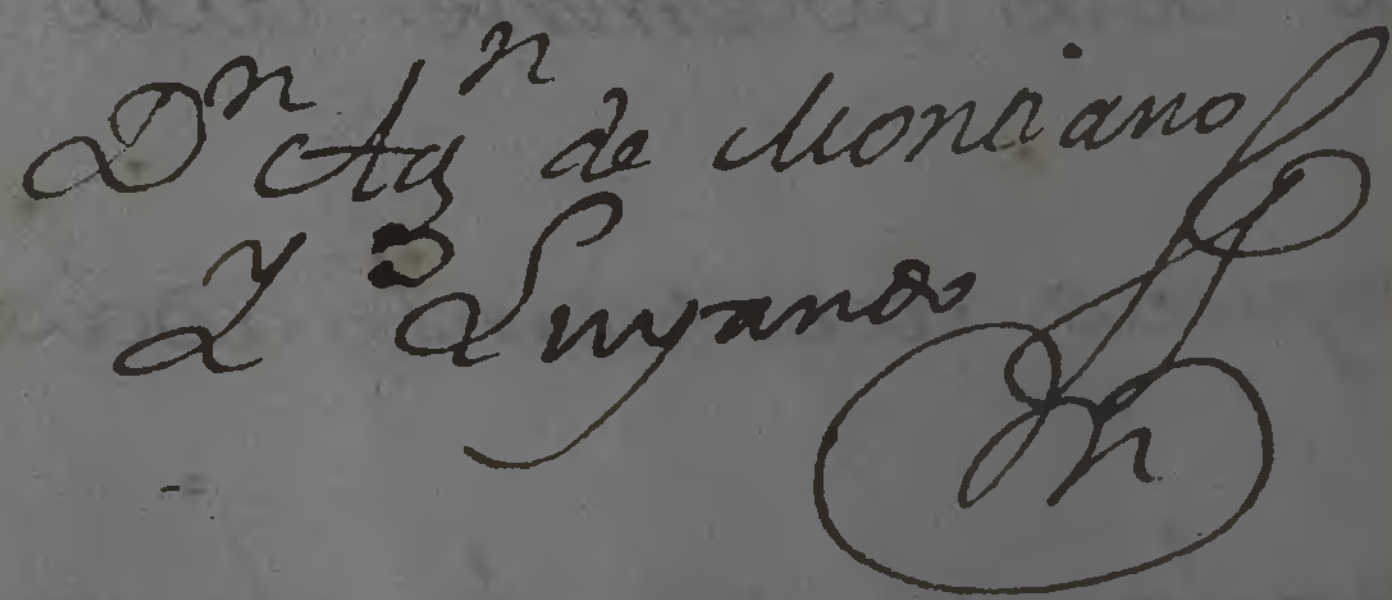 Dn Agn de Montiano
Y Luyando